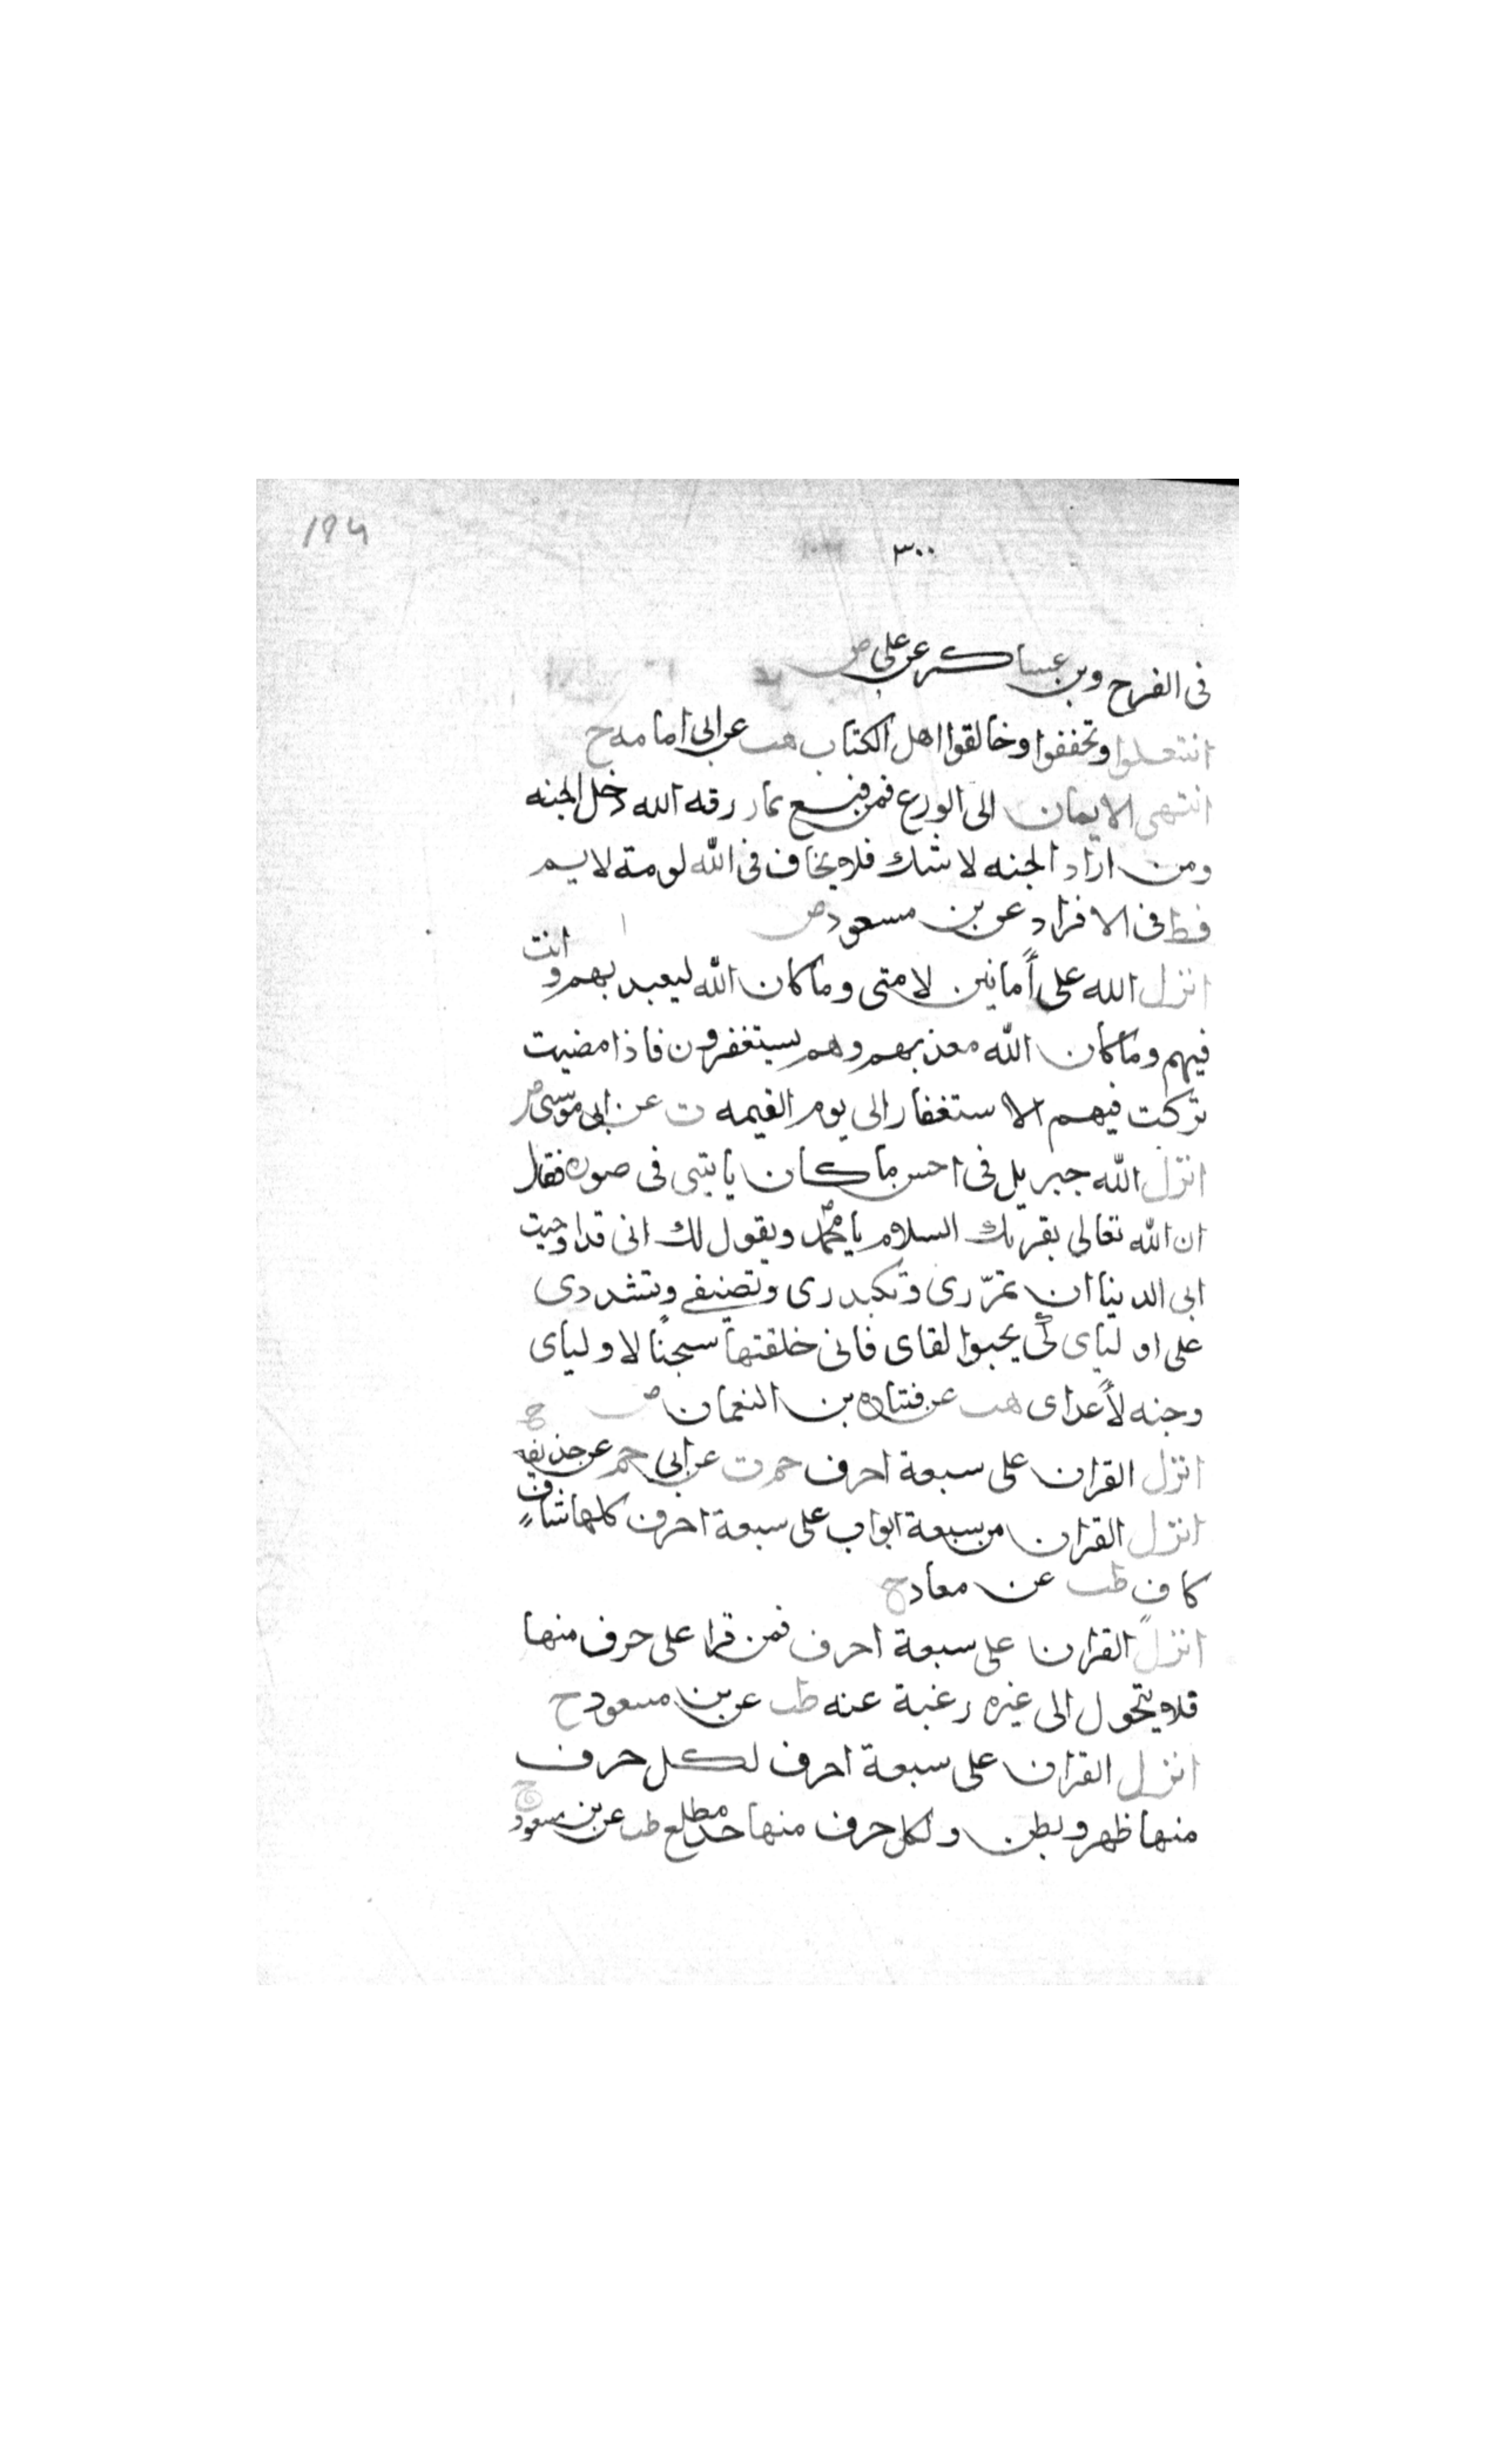 194
٣٠٠
فى الفرح وبن عساكر عن على ض
انتعلوا وتخففوا وخالقوا اهل الكتاب هب عن ابى امامه ح
انتهى الايمان الى الورع فمن قنع بمار رقه الله دخل الجنه
ومن اراد الجنه لا شك فلا يخاف فى الله لومة لايم
قط فى الافراد عن بن مسعود ض
انزل الله على أمانين لامتى وما كان الله ليعبد بهم وانت
فيهم وما كان الله معذبهم وهم يستغفرون فاذا مضيت
تركت فيهم الاستغفار الى يوم القيمه ت عن ابى موسى ض
انزل الله جبريل فى احسن ما كان ياتينى فى صوره فقال
ان الله تعالى يقريك السلام يا محمد ويقول لك انى قد اوحيت
الى الدينا ان تمرّرى وتكدرى وتضيقى وتشددى
على اوليأى كى يحبوا لقاى فانى خلقتها سجنًا لاوليأى
وجنه لأعداى هب عن قتاده بن النعمان ض
انزل القران على سبعة احرف حم ت عن ابى حم عن حذيفه ح
انزل القران من سبعة ابواب على سبعة احرف كلها شاف
كاف طب عن معاد ح
انزل القران على سبعة احرف فمن قرا على حرف منها
فلا يتحول الى غيره رغبة عنه طب عن بن مسعود ح
انزل القران على سبعة احرف لكل حرف
منها ظهر وبطن ولكل حرف منها حد مطلع طب عن بن مسعود ح